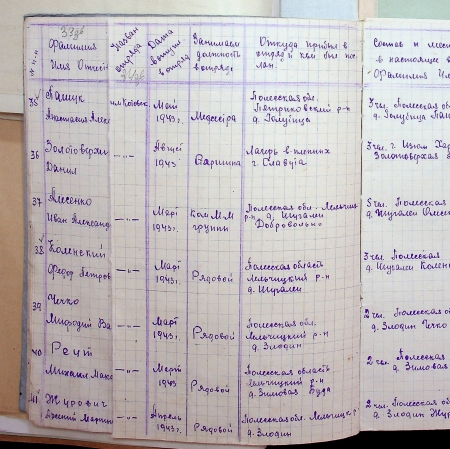 33
№ п.п.
Фамилия
Имя Отчест
Назван
отряда
Дата
вступл
в отряд
Занимаем
должность
в отряде
Откуда прибыл в
отряд и кем был пос
лан.
Состав и мест
в настоящее в
Фамилия Им
35
Пашук
Анастасия Алекс
Май
1943 г.
Медсестра
Полесская обл.
Петриковский р-н
д. Голубица
3 чел. Полесская об
д. Голубица Паш
36
Золотоверхи
Данил
—"—
Август
1943
Старшина
Лагерь в. пленных
г. Славута
3 чел. г. Изюм Хар
Золотоверхая
37
Алесенко
Иван Александ
—"—
Март
1943 г.
Ком ММ
группы
Полесская обл. Лельчиц
р-н д. Шугалеи
Добровольно
5 чел. Полесская
д. Шугалеи Олесен
38
Коленский
Федор Петров
—"—
Март
1943 г.
Рядовой
Полесская область
Лельчицкий р-н
д. Шугалеи
3 чел. Полесская
д. Шугалеи Колен
39
Чечко
Мифодий Ва
—"—
Март
1943 г.
Рядовой
Полесская обл.
Лельчицкий р-н
д. Злодин
2 чел. Полесская об
д. Злодин Чечко
40
Реут
Михаил Макс
—"—
Март
1943 г.
Рядовой
Полесская область
Лельчицкий р-н
д. Зимовая Буда
2 чел. Полесская
д. Зимовая
41
Журович
Арсений Мартин
—"—
Апрель
1943 г.
Рядовой
Полесская обл. Лельчиц. р
д. Злодин
2 чел. Полесская об
д. Злодин Жур